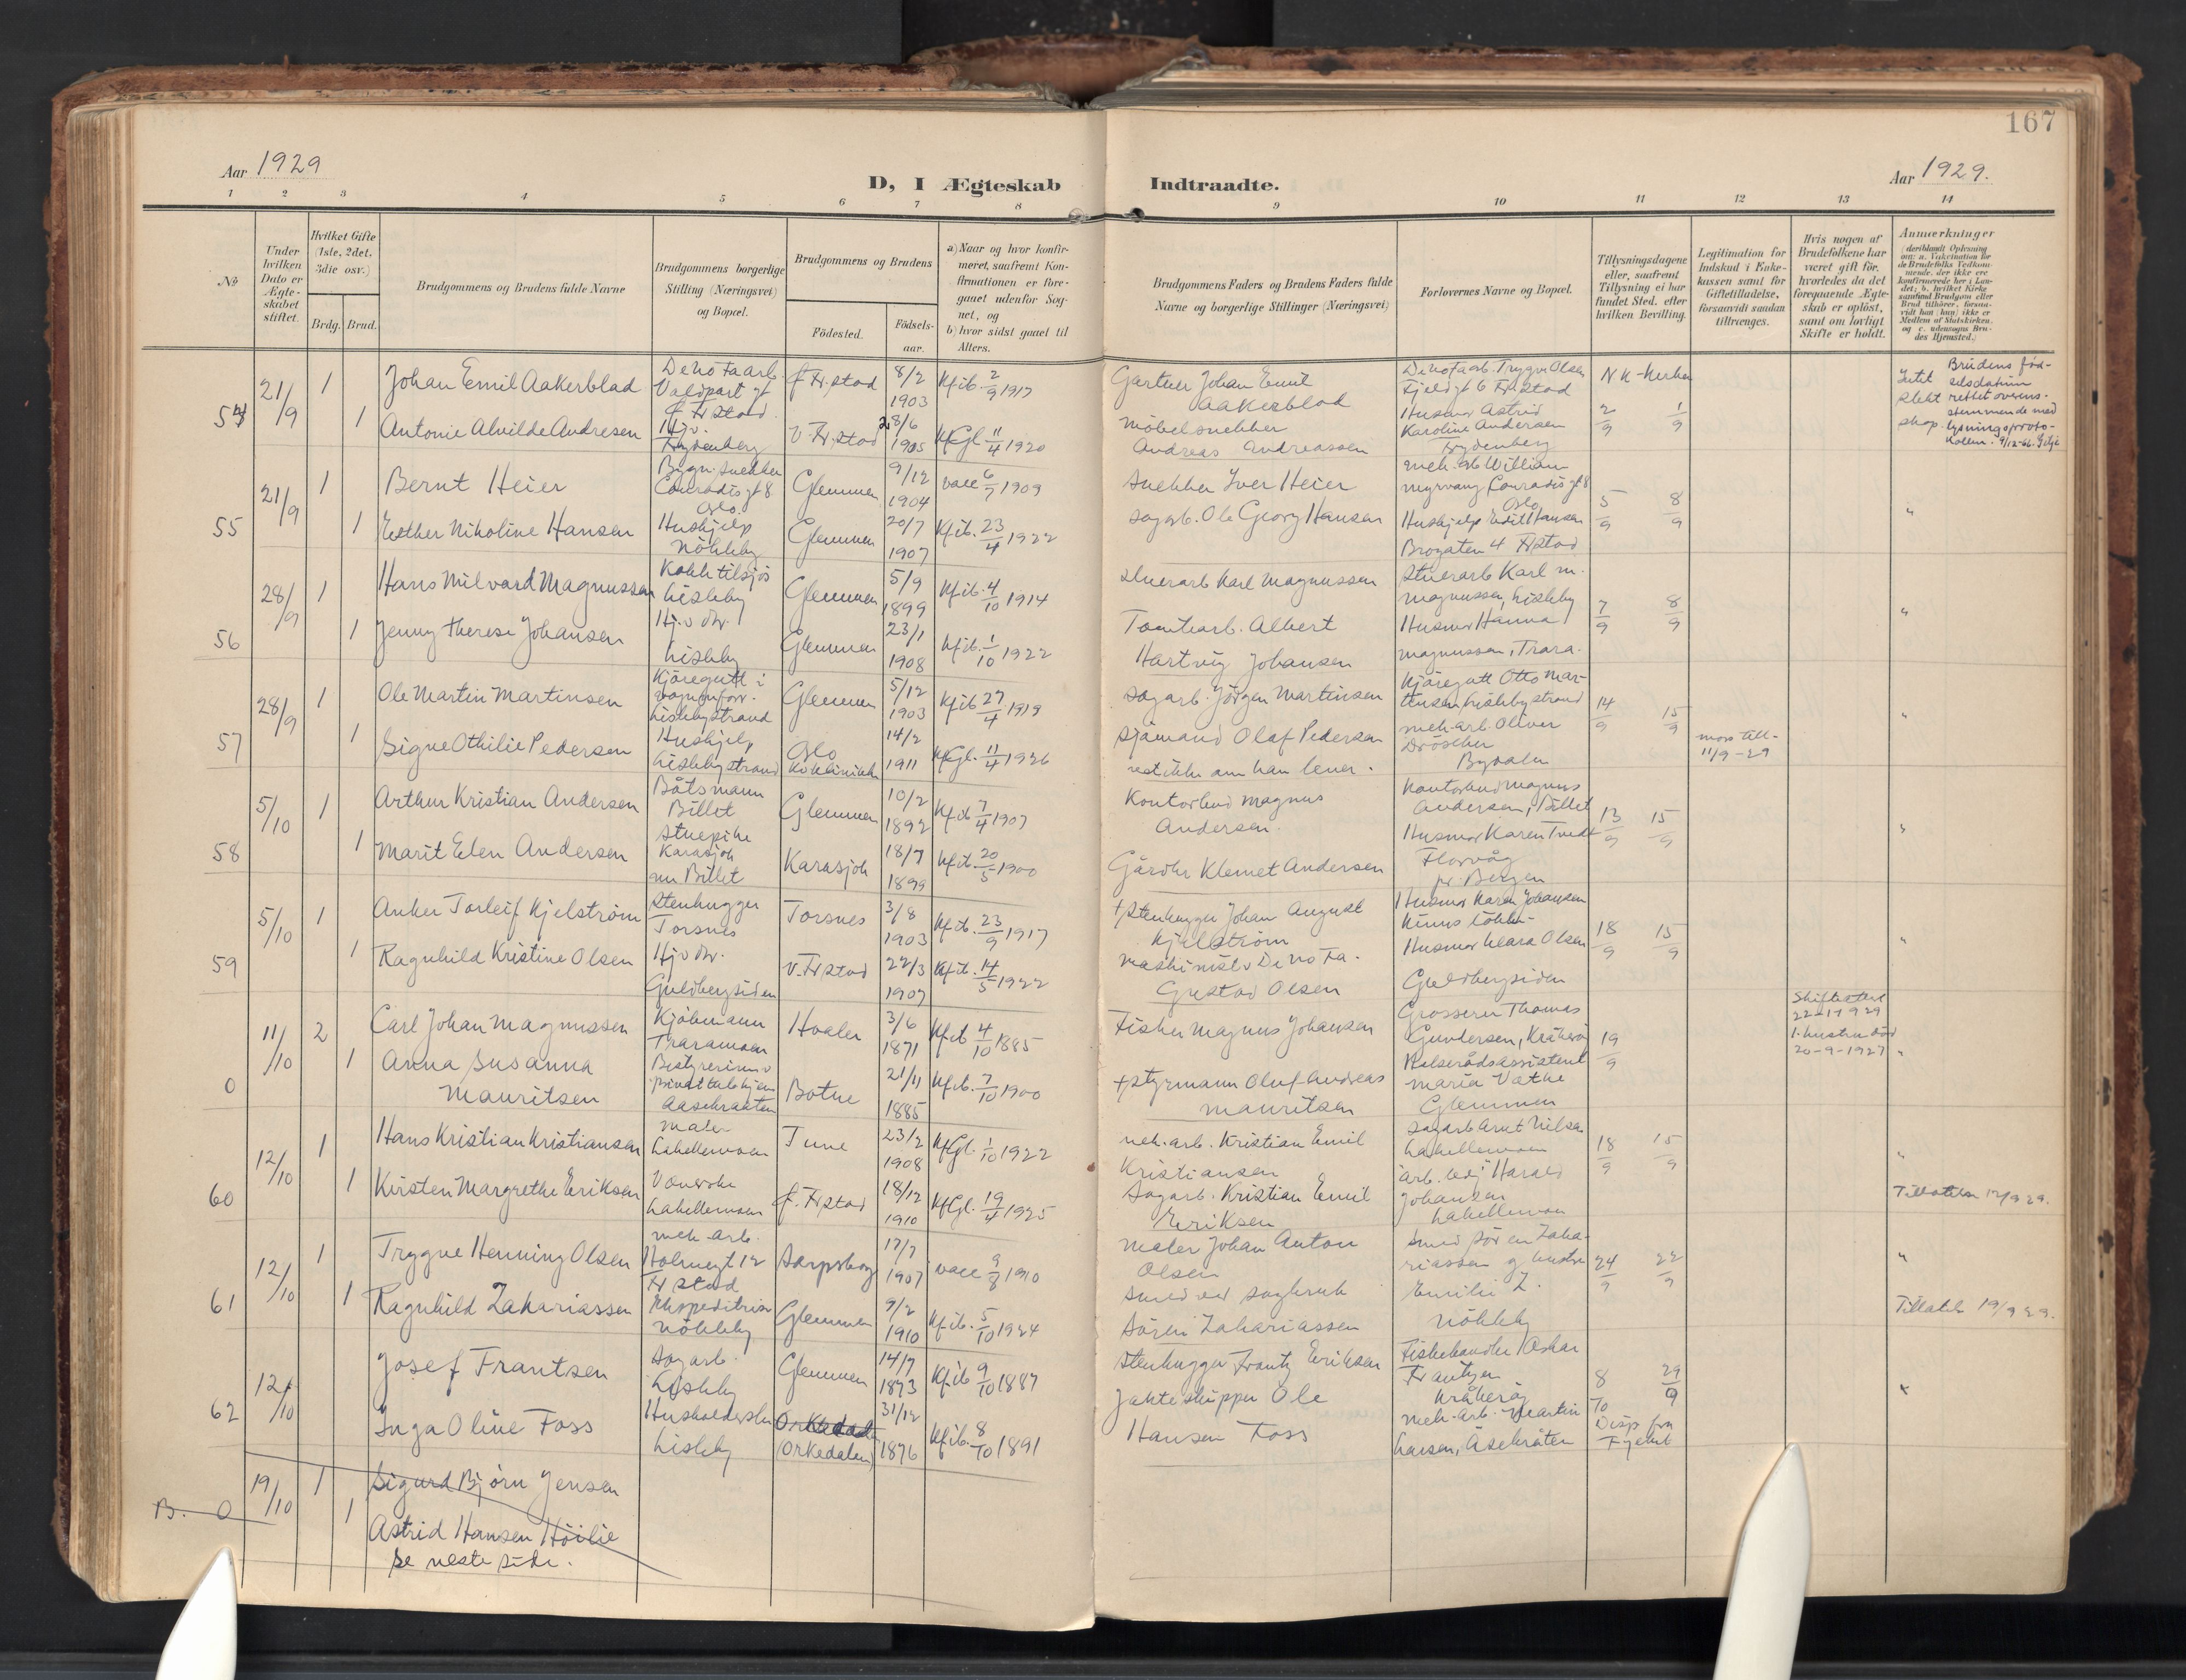 167
Aar 1929
D, I Ægteskab Indtraadte.
Aar 1929.
1 2 3 4 5 6 7 8 9 10 11 12 13 14
No
Under hvilken Dato er Ægteskabet stiftet.
Hvilket Gifte (1ste, 2det, 3die osv.)
Brdg. Brud.
Brudgommens og Brudens fulde Navne
Brudgommens borgerlige Stilling (Næringsvei) og Bopæl.
Brudgommens og Brudens
Fødested.
Fødselsaar.
a) Naar og hvor konfirmeret, saafremt Konfirmationen er foregaaet udenfor Sognet, og
b) hvor sidst gaaet til Alters.
Brudgommens Faders og Brudens Faders fulde Navne og borgerlige Stillinger (Næringsvei)
Forlovernes Navne og Bopæl.
Tillysningsdagene eller, saafremt Tillysning ei har fundet Sted, efter hvilken Bevilling.
Legitimation for Indskud i Enkekassen samt for Giftetilladelse, forsaavidt saadan tiltrænges.
Hvis nogen af Brudefolkene har været gift før, hvorledes da det foregaaende Ægteskab er opløst, samt om lovligt Skifte er holdt.
Anmærkninger
(deriblandt Oplysning om: a. Vakcination for de Brudefolks Vedkommende, der ikke ere konfirmerede her i Landet; b. hvilket Kirkesamfund Brudgom eller Brud tilhører, forsaavidt han (hun) ikke er Medlem af Statskirken, og c. udensogns Brudes Hjemsted.)
54 21/9 1 Johan Emil Aakerblad
De no fa arb.
Valdport gt
f Fr.stad
f Fr.stad 8/2 1903 Kfib. 2/9 1917
Gartner Johan Emil
Aakerblad
De no fa arb. Trygve Olsen
Fjeldgt 6 Fr.stad
Husmor Astrid
Karoline Andersen
Frydenberg
2/9 1/9
Brudens fødselsdatum
rettet overensstemmende med
lysningsprotokollen. 9/12-66.
1 Antonie Alvilde Andresen
Hj.v.
Frydenberg
V. Fr.stad 28/6 1905 KfGl 11/4 1920
Møbelsnekker
Andreas Andreassen
55 21/9 1 Bernt Heier
Bygn. snekker
Conradisgt 8
Oslo.
Glemmen 9/12 1904 vacc 6/7 1909
Snekker Iver Heier
mek. arb William
Myrvang Conradisgt 8
Oslo
5/9 8/9 "
1 Esther Nikoline Hansen
Hushjelp
Nøkkleby
Glemmen 20/7 1907 Kfib. 23/4 1922
Sagarb. Ole Georg Hansen
Hushjelp Edit Hansen
Brogaten 4 Fr.stad
56 28/9 1 Hans Milvard Magnussen
Kokk tilsjøs
Lisleby
Glemmen 5/9 1899 Kfib. 4/10 1914
Stuerarb Karl Magnussen
Stuerarb Karl M.
Magnussen, Lisleby
7/9 8/9 "
1 Jenny Therese Johansen
Hj.v dtr.
Lisleby
Glemmen 23/1 1908 Kfib. 1/10 1922
Tomtearb. Albert
Hartvig Johansen
Husmor Hanna
Magnussen, Trara.
57 28/9 1 Ole Martin Martinsen
Kjøregutt i
vognforr.
Lislebystrand
Glemmen 5/12 1903 Kfib 27/4 1919
Sagarb. Jørgen Martinsen
Kjøregutt Otto Martinsen Lislebystrand
14/9 15/9 "
1 Signe Othilie Pedersen
Hushjelp
Lislebystrand
Oslo
Kv klinikk
14/2 1911 KfGl. 11/4 1926
Sjømand Olaf Pedersen
vet ikke om han lever.
mek. arb. Oliver
Drøscher
Bydalen
mors till. 11/9-29
58 5/10 1 Arthur Kristian Andersen
Båtsmann
Billet
Glemmen 10/2 1892 Kfib 7/4 1907
Kontorbud Magnus
Andersen.
Kontorbud Magnus
Andersen, Billet
13/9 15/9 "
1 Marit Elen Andersen
Stuepike
Karasjok
nu Billet
Karasjok 18/7 1899 Kfib. 20/5 1900
Gårdbr Klemet Andersen
Husmor Karen Tvedt
Florvåg
pr. Bergen
59 5/10 1 Anker Torleif Kjelstrøm
Stenhugger
Torsnes
Torsnes 3/8 1903 Kfib. 23/9 1917
+ Stenhugger Johan August
Kjelstrøm
Husmor Karen Johansen
18/9 15/9 "
1 Ragnhild Kristine Olsen
Hj.v dtr.
Guldbergsiden
V. Fr.stad 22/3 1907 Kfib. 14/5 1922
Maskinist v De No Fa.
Gustav Olsen
Husmor Klara Olsen
Guldbergsiden
0 11/10 2 Carl Johan Magnussen
Kjøbmann
Traramoen
Hvaler 3/6 1871 Kfib 4/10 1885
Fisker Magnus Johansen
Grosserer Thomas
Gundersen, Kråkerøy
19/9
Skifteattest
22-1-1929
1. hustru død
20-9-1927 "
1 Anna Susanna
Mauritsen
Bestyrerinne v
privat
Aasekraaten
Botne 21/11 1885 Kfib. 7/10 1900
+ Styrmann Oluf Andreas
Mauritsen
Helserådsassistent
Maria Vathe
Glemmen
60 12/10 1 Hans Kristian Kristiansen
Maler
Lahellemoen
Tune 23/2 1908 KfGl. 1/10 1922
mek. arb. Kristian Emil
Kristiansen
Sagarb Arnt Nilsen
Lahellemoen
18/9 15/9 "
1 Kirsten Margrethe Eriksen
Veverske
Lahellemoen
f. Fr.stad 18/12 1910 KfGl. 19/4 1925
Sagarb. Kristian Emil
Eriksen
arb. led. Harald
Johansen
Lahellemoen
Tillatelse 12/9 29.
61 12/10 1 Trygve Henning Olsen
mek. arb.
Holmegt 12
Fr stad
Sarpsborg 17/7 1907 vacc 9/8 1910
Maler Johan Anton
Olsen
Smed Søren Zakariassen og hustru
Emilie Z.
Nøkkleby
24/9 22/9 "
1 Ragnhild Zakariassen
Ekspeditrise
Nøkkleby
Glemmen 9/2 1910 Kfib. 5/10 1924
Smed ved sagbruk
Søren Zakariassen
Tillatels 19/9 29.
62 12/10 1 Josef Frantsen
Sagarb.
Lisleby
Glemmen 14/7 1873 Kfib 9/10 1887
Stenhugger Frantz Eriksen
Fiskehandler Oskar
Frantzen
Kråkerøy
8/10 29/9 "
Inga Oline Foss
Husholderske
Lisleby
(Orkedalen) 31/12 1876 Kfib. 8/10 1891
Jakteskipper Ole
Hansen Foss
mek. arb. Martin
Larsen, Åsekråten
Disp fra
Fylket
B. 0 19/10 1 Sigurd Bjørn Jensen
1 Astrid Hansen Høilie
Se neste side.